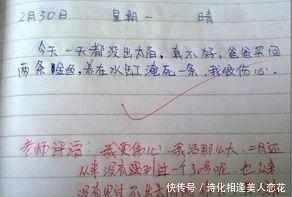 2月30日 星期一 晴
今天一天都没出太阳,真不好,爸爸买回
两条鱼,养在水缸淹死一条,我很伤心。
老师评语:我更伤心,我活那么大,二月还
从来没有碰到过一个30号呢,也从来
没有
快传号 / 诗化相逢美人恋花